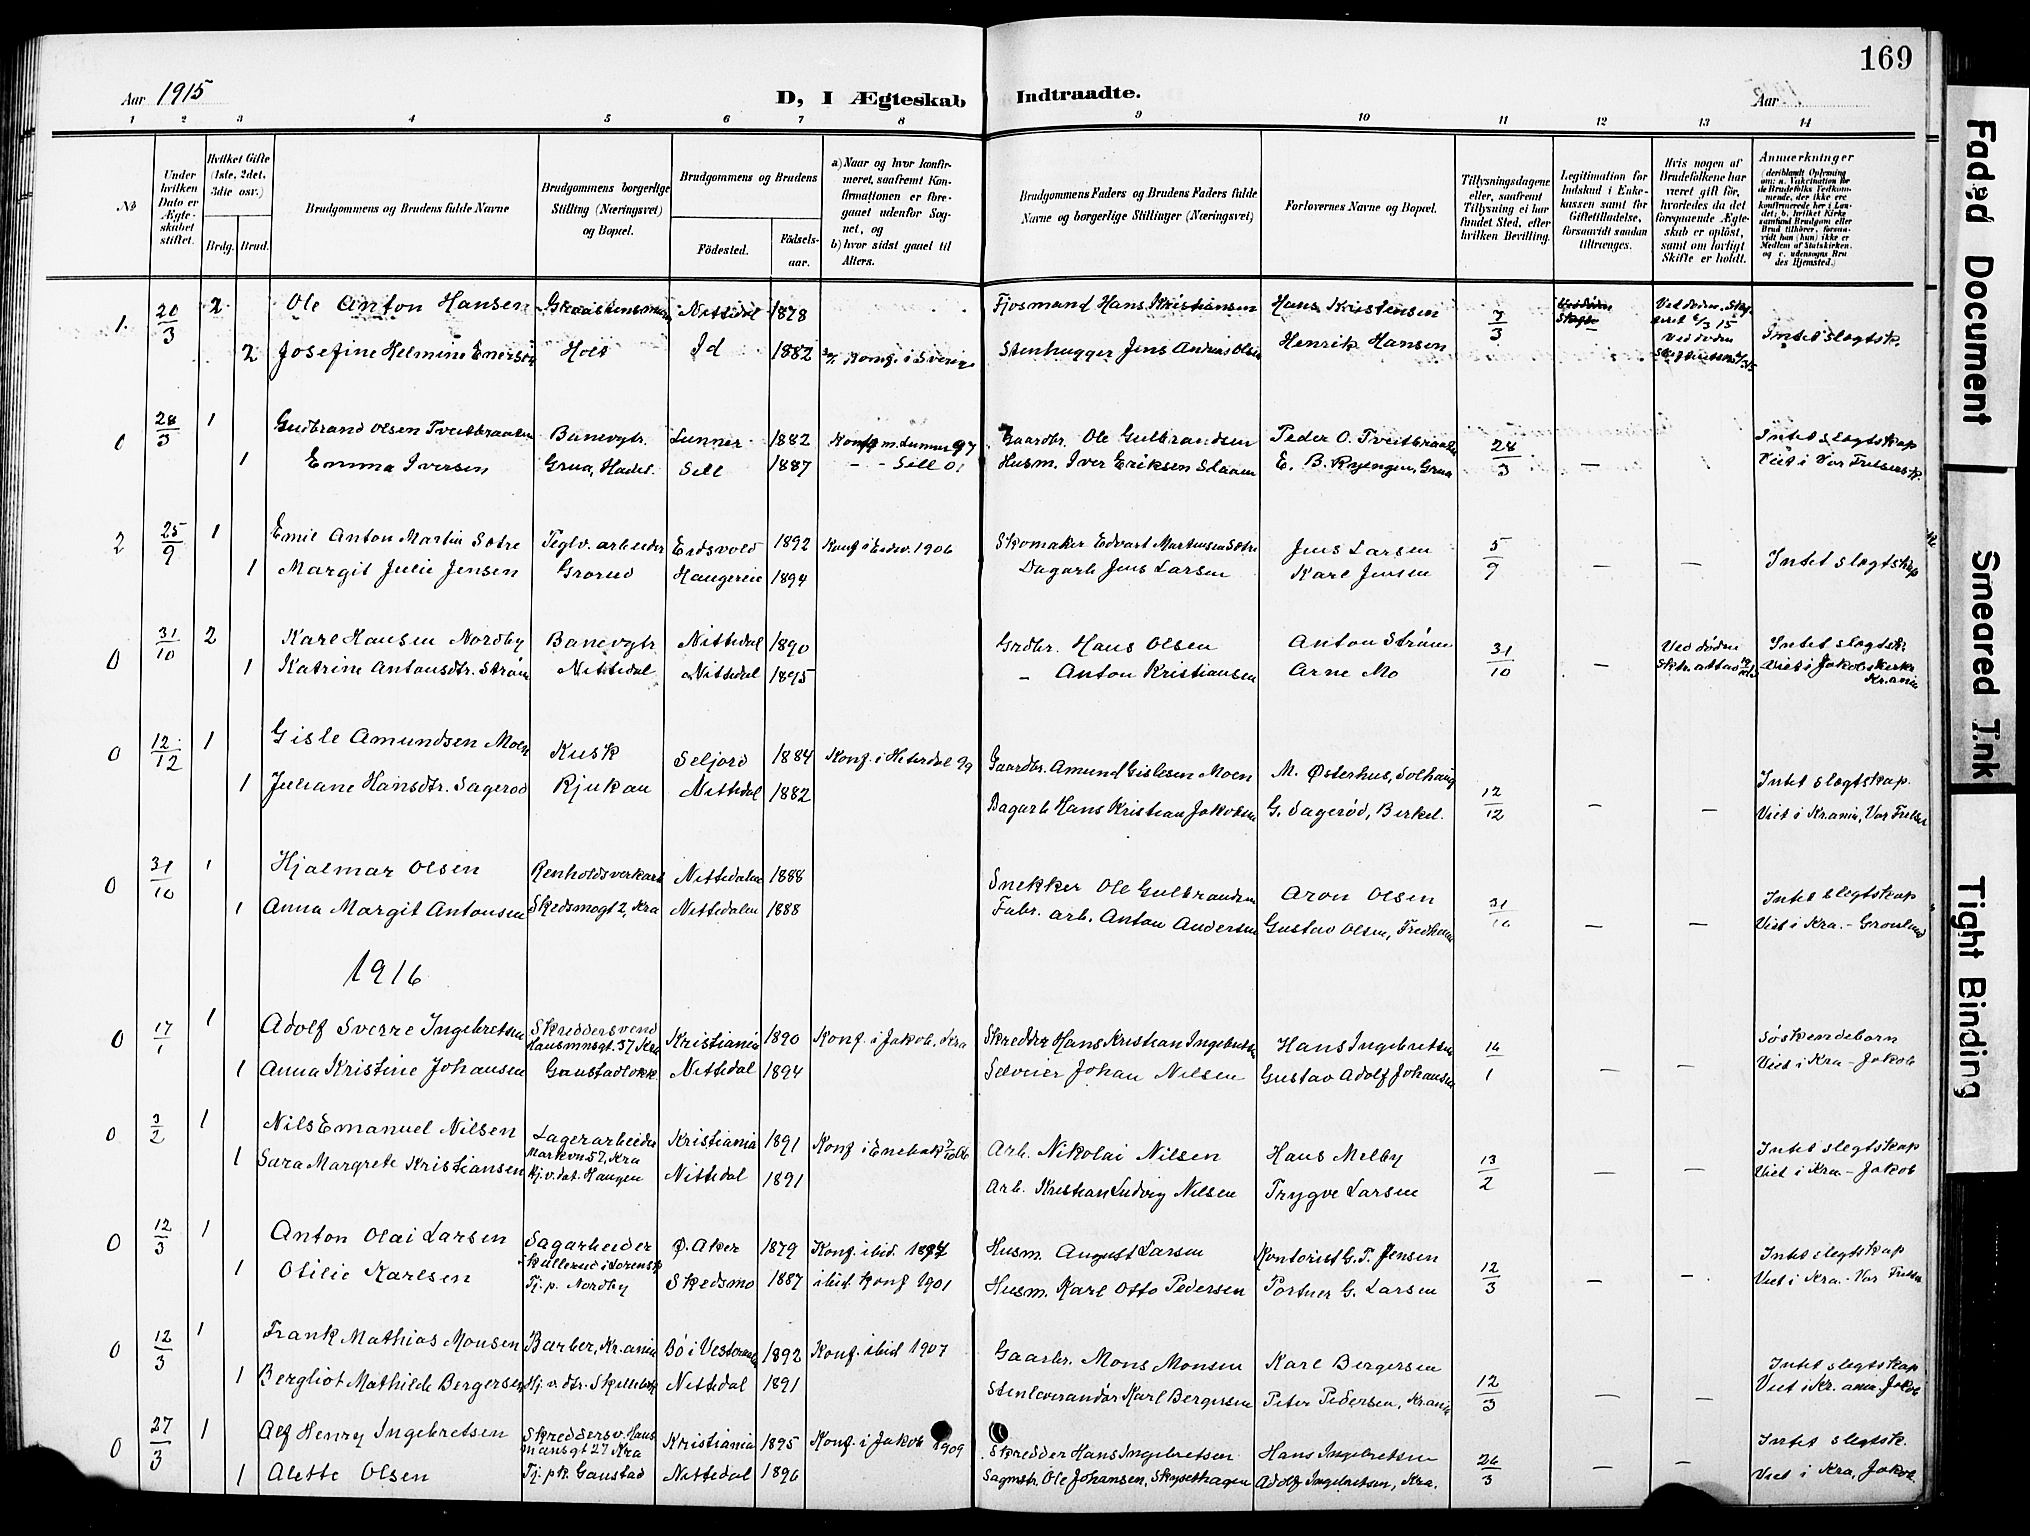 169
Aar 1915
D, I Ægteskab Indtraadte.
Aar
1 2 3 4 5 6 7 8 9 10 11 12 13 14
No
Under hvilken Dato er Ægteskabet stiftet.
Hvilket Gifte (1ste, 2det, 3die osv.)
Brdg. Brud.
Brudgommens og Brudens fulde Navne
Brudgommens borgerlige Stilling (Næringsvei) og Bopæl.
Brudgommens og Brudens
Fødested.
Fødselsaar.
a) Naar og hvor konfirmeret, saafremt Konfirmationen er foregaaet udenfor Sognet, og
b) hvor sidst gaaet til Alters.
Brudgommens Faders og Brudens Faders fulde Navne og borgerlige Stillinger (Næringsvei)
Forlovernes Navne og Bopæl.
Tillysningsdagene eller, saafremt Tillysning ei har fundet Sted, efter hvilken Bevilling.
Legitimation for Indskud i Enkekassen samt for Giftetilladelse, forsaavidt saadan tiltrænges.
Hvis nogen af Brudefolkene har været gift før, hvorledes da det foregaaende Ægteskab er opløst, samt om lovligt Skifte er holdt.
Anmerkninger
1. 20/3 2 Ole Anton Hansen Nittedal 1878 Fjosmand Hans Kristiansen Hans Kristensen 7/3
2 Josefine Helmine Enersen Holt Id 1882 Konf. i Sverige Stenhugger Jens Andreas Olsen Henrik Hansen Intet slegtsk.
0 28/3 1 Gudbrand Olsen Tveitbraaten Banevgtr. Lunner 1882 Gaardbr. Ole Gulbrandsen Peder O. Tveitbraaten 28/3 Intet slegtskap
1 Emma Iversen Grua, Hadel. Sell 1887 - - Sell 01 Husm. Iver Eriksen Slaaen E. B. Ryengen, Grua — Viet i Vor Frelsersk.
2 25/9 1 Emil Anton Martin Sætre Teglv. arbeider Eidsvold 1892 Konf i Eidsv. 1906 Skomaker Edvart Martinsen Sætre Jens Larsen 5/9
1 Margit Julie Jensen Grorud Haugerein 1894 Dagarb Jens Larsen Karl Jensen — — Intet slegtskap
0 31/10 2 Karl Hansen Nordby Banevgtr Nittedal 1890 Grdbr. Hans Olsen Anton Strøm 31/10 Ved døden Intet slegtsk.
1 Katrine Antonsdtr. Strøm Nittedal Nittedal 1895 - Anton Kristiansen Arne Mo — Viet i Jakobs kirke Kr.ania
0 12/12 1 Gisle Amundsen Moen Kusk Seljord 1884 Konf. i Hiterdal 99 Gaardbr. Amund Gislesen Moen M. Østerhus, Solhaug 12/12 Intet slegtskap.
1 Juliane Hansdtr. Sagerød Rjukan Nittedal 1882 Dagarb Hans Kristian Jakobsen G. Sagerød, Birkel. — — Viet i Krania, Vor Frelser
0 31/10 1 Hjalmar Olsen Renholdsverkarb Nittedalen 1888 Snekker Ole Gulbrandsen Aron Olsen 31/10 Intet slegtskap
1 Anna Margit Antonsen Skedsmogt 2, Kra Nittedalen 1888 Fabr. arb. Anton Andersen Gustav Olsen, Fredheim — — Viet i Kra. - Grønland
1916
0 17/1 1 Adolf Sverre Ingebretsen Skreddersvend Hausmnsgt. 37 Kra Kristiania 1890 Konf. i Jakob, Kra Skredder Hans Kristian Ingebretsen Hans Ingebretsen 14/1 Søskendebarn
1 Anna Kristine Johansen Gaustadløkk. Nittedal 1894 Selveier Johan Nilsen Gustav Adolf Johansen — — Viet i Kra - Jakob
0 3/2 1 Nils Emanuel Nilsen Lagerarbeider Markvn 57, Kra Kristiania 1891 Konf. i Enebak Arb. Nikolai Nilsen Hans Melby 13/2 Intet slegtskap
1 Sara Margrete Kristiansen Hj. v. dat. Haugen Nittedal 1891 Arb. Kristian Ludvig Nilsen Trygve Larsen — — Viet i Kra - Jakob
0 12/3 1 Anton Olai Larsen Sagarbeider Skullerud i Lorensk Ø. Aker 1879 Konf. ibid. 1894 Husm. August Larsen Kontorist G. T. Jensen 12/3 Intet slegtskap
1 Otilie Karlsen Tj. p. Nordby Skedsmo 1887 ibid Konf 1901 Husm. Karl Otto Pedersen Portner G. Larsen — — Viet i Kra. - Vor Frelser
0 12/3 1 Frank Mathias Monsen Barber, Kr.ania Bø i Vesteraalen 1892 Konf. ibid 1907 Gaarbr. Mons Monsen Karl Bergersen 12/3 Intet slegtskap
1 Bergliot Mathilde Bergersen Hj. v. dtr. Skillebek Nittedal 1891 Stenleverandør Karl Bergersen Peter Pedersen, Krania — — Viet i Kr. ania Jakob
0 27/3 1 Alf Henry Ingebretsen Skreddersv. Hausmansgt 27 Kra Kristiania 1895 Konf. i Jakob 1909 Skredder Hans Ingebretsen Hans Ingebretsen 26/3 Intet slegtsk.
1 Alette Olsen Tj. pk. Gaustad Nittedal 1896 Sagmstr. Ole Johansen, Skysethagen Adolf Ingebretsen, Kra. — — Viet i Kra, Jakob
Faded Document
Smeared Ink
Tight Binding